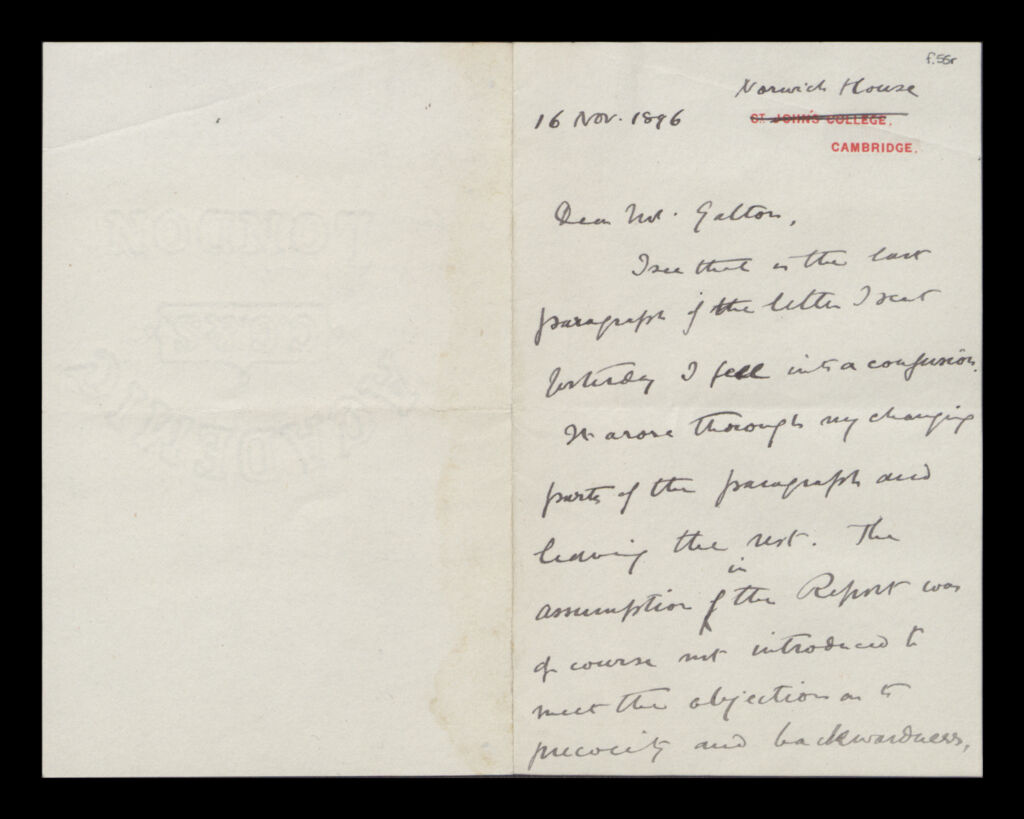 f.55r
Norwich House
16 Nov. 1896
ST. JOHN'S COLLEGE.
CAMBRIDGE.
Dear Mr. Galton,
I see that in the last
paragraph of the letter I sent
yesterday I fell into a confusion.
It arose through my changing
parts of the paragraph and
leaving the rest. The
in
assumption of the Report was
of course not introduced to
meet the objection as to
precocity and backwardness,